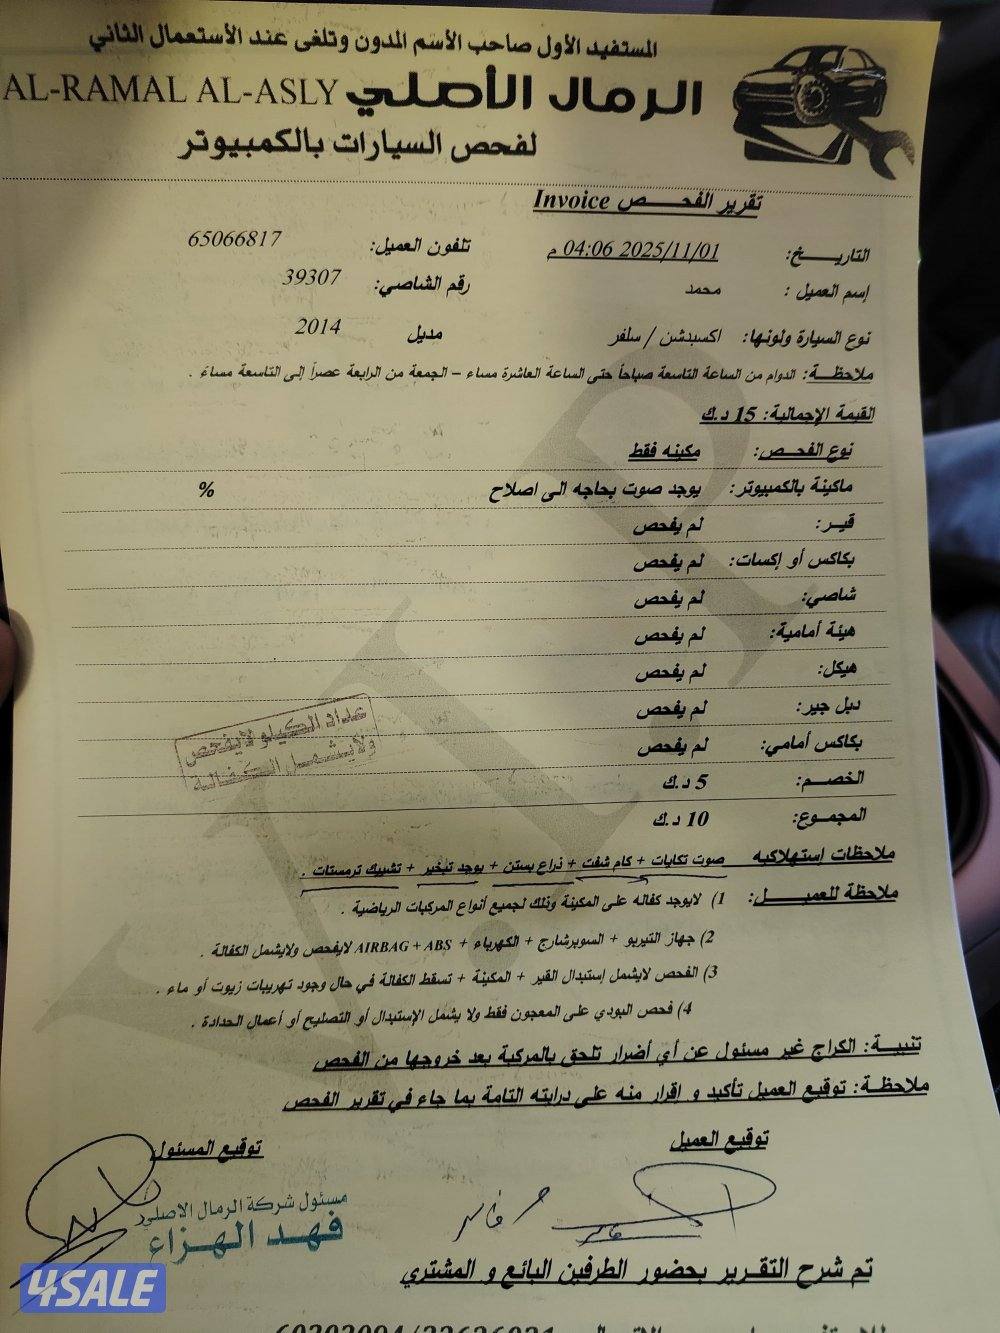 المستفيد الأول صاحب الأسم المدون وتلغى عند الأستعمال الثاني
الرمال الأصلي AL-RAMAL AL-ASLY
لفحص السيارات بالكمبيوتر
تقرير الفحـــص Invoice
التاريـــخ: 2025/11/01 04:06 م تلفون العميل: 65066817
إسم العميل : محمد رقم الشاصي: 39307
نوع السيارة ولونها: اكسبدشن / سلفر مديل 2014
ملاحظــة: الدوام من الساعة التاسعة صباحاً حتى الساعة العاشرة مساء – الجمعة من الرابعة عصراً إلى التاسعة مساءً .
القيمة الإجمالية: 15 د.ك
نوع الفحـص: مكينه فقط
ماكينة بالكمبيوتر: يوجد صوت بحاجه الى اصلاح %
قيـر: لم يفحص
بكاكس أو إكسات: لم يفحص
شاصي: لم يفحص
هيئة أمامية: لم يفحص
هيكل: لم يفحص
دبل جير: لم يفحص
بكاكس أمامي: لم يفحص
عداد الكيلو لايفحص
ولايشمل الكفالة
الخصـم: 5 د.ك
المجمـوع: 10 د.ك
ملاحظات إستهلاكيه صوت تكايات + كام شفت + ذراع بستن + يوجد تبخير + تشييك ترمستات .
ملاحظة للعميــل: 1) لايوجد كفاله على المكينة وذلك لجميع أنواع المركبات الرياضية .
2) جهاز التيربو + السوبرشارج + الكهرباء + AIRBAG + ABS لايفحص ولايشمل الكفالة .
3) الفحص لايشمل إستبدال القير + المكينة + تسقط الكفالة في حال وجود تهريبات زيوت أو ماء .
4) فحص البودي على المعجون فقط ولا يشمل الإستبدال أو التصليح أو أعمال الحدادة .
تنبيـة: الكراج غير مسئول عن أي أضرار تلحق بالمركبة بعد خروجها من الفحص
ملاحظـة: توقيع العميل تأكيد و إقرار منه على درايته التامة بما جاء في تقرير الفحص
توقيع العميل توقيع المسئول
مسئول شركة الرمال الاصلي
فهد الهزاع
تم شرح التقـرير بحضور الطرفين البائع و المشتري
4SALE